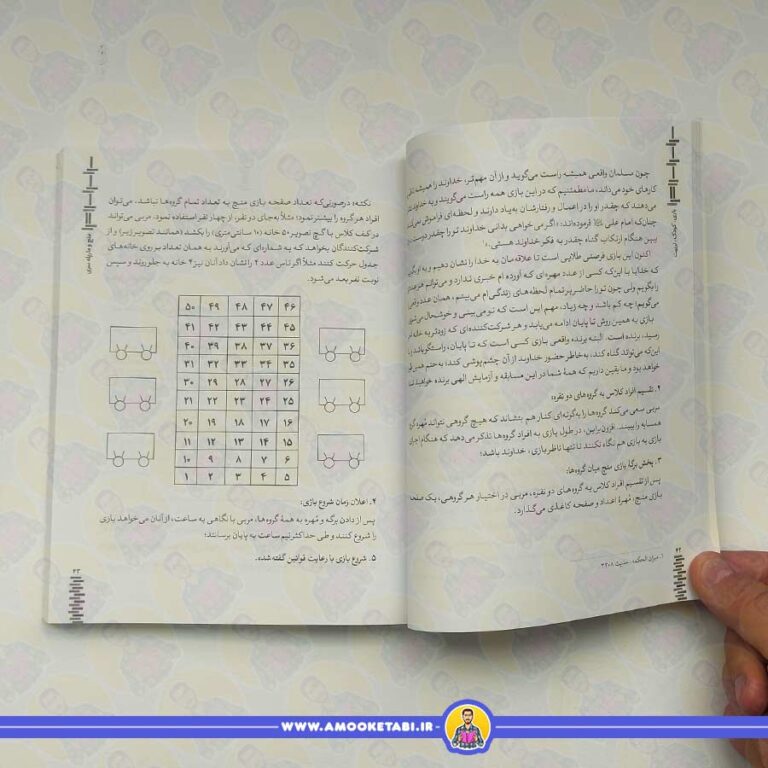 چون مسلمان واقعی همیشه راست می‌گوید و از آن مهم‌تر، خداوند را همیشه
کارهای خود می‌داند، ما مطمئنیم که در این بازی همه راست می‌گویند و به خداوند
می‌دهند که چقدر او را در اعمال و رفتارشان به‌یاد دارند و لحظه‌ای فراموش
چنان‌که امام علی فرموده‌اند: «اگر می‌خواهی بدانی خداوند تو را چقدر دوست
ببین هنگام ارتکاب گناه چقدر به فکر خداوند هستی.»۱
اکنون این بازی فرصتی طلایی است تا علاقه‌مان به خدا را نشان دهیم و به او بگوییم
که خدایا با این‌که کسی از عدد مهره‌ای که آورده‌ام خبری ندارد و می‌توانم هر عددی
را بگویم ولی چون تو را حاضر بر تمام لحظه‌های زندگی‌ام می‌بینم، همان عدد واقعی
می‌گویم؛ چه کم باشد و چه زیاد، مهم این است که تو می‌بینی و خوشحال می‌شوی
بازی به همین روش تا پایان ادامه می‌یابد و هر شرکت‌کننده‌ای که زودتر به خانه
رسید، برنده است. البته برنده واقعی بازی کسی است که تا پایان، راستگو باشد
این‌که می‌تواند گناه کند، به‌خاطر حضور خداوند از آن چشم‌پوشی کند؛ به حتم همین
خواهد بود و ما یقین داریم که همهٔ شما در این مسابقه و آزمایش الهی برنده خواهید
۲. تقسیم افراد کلاس به گروه‌های دو نفره:
مربی سعی می‌کند گروه‌ها را به‌گونه‌ای کنار هم بنشاند که هیچ گروهی نتواند مهره
همسایه را ببیند. افزون براین، در طول بازی به افراد گروه‌ها تذکر می‌دهد که هنگام اجرای
بازی به بازی هم نگاه نکنند تا تنها ناظر بازی، خداوند باشد؛
۳. پخش برگهٔ بازی منچ میان گروه‌ها:
پس از تقسیم افراد کلاس به گروه‌های دو نفره، مربی در اختیار هر گروهی، یک صفحه
بازی منچ، مُهرهٔ اعداد و صفحه کاغذی می‌گذارد.
۱. میزان الحکمه، حدیث ۳۲۰۸
۴۲
نکته: درصورتی‌که تعداد صفحه بازی منچ به تعداد تمام گروه‌ها نباشد، می‌توان
افراد هر گروه را بیشتر نمود؛ مثلاً به‌جای دو نفر، از چهار نفر استفاده نمود. مربی می‌تواند
در کف کلاس با گچ تصویر ۵۰ خانه (۱۰ سانتی‌متری) را بکشد (همانند تصویر زیر) و از
شرکت‌کنندگان بخواهد که به شماره‌ای که می‌آورند به همان تعداد بر روی خانه‌های
جدول حرکت کنند. مثلاً اگر تاس عدد ۴ را نشان داد آنان نیز ۴ خانه به جلو روند و سپس
نوبت نفر بعد می‌شود.
۵۰ ۴۹ ۴۸ ۴۷ ۴۶
۴۱ ۴۲ ۴۳ ۴۴ ۴۵
۴۰ ۳۹ ۳۸ ۳۷ ۳۶
۳۱ ۳۲ ۳۳ ۳۴ ۳۵
۳۰ ۲۹ ۲۸ ۲۷ ۲۶
۲۱ ۲۲ ۲۳ ۲۴ ۲۵
۲۰ ۱۹ ۱۸ ۱۷ ۱۶
۱۱ ۱۲ ۱۳ ۱۴ ۱۵
۱۰ ۹ ۸ ۷ ۶
۱ ۲ ۳ ۴ ۵
۴. اعلان زمان شروع بازی:
پس از دادن برگه و مُهره به همهٔ گروه‌ها، مربی با نگاهی به ساعت، از آنان می‌خواهد بازی
را شروع کنند و طی حداکثر نیم ساعت به پایان برسانند؛
۵. شروع بازی با رعایت قوانین گفته شده.
منچ و مارپله سری
۴۳
WWW.AMOOKETABI.IR